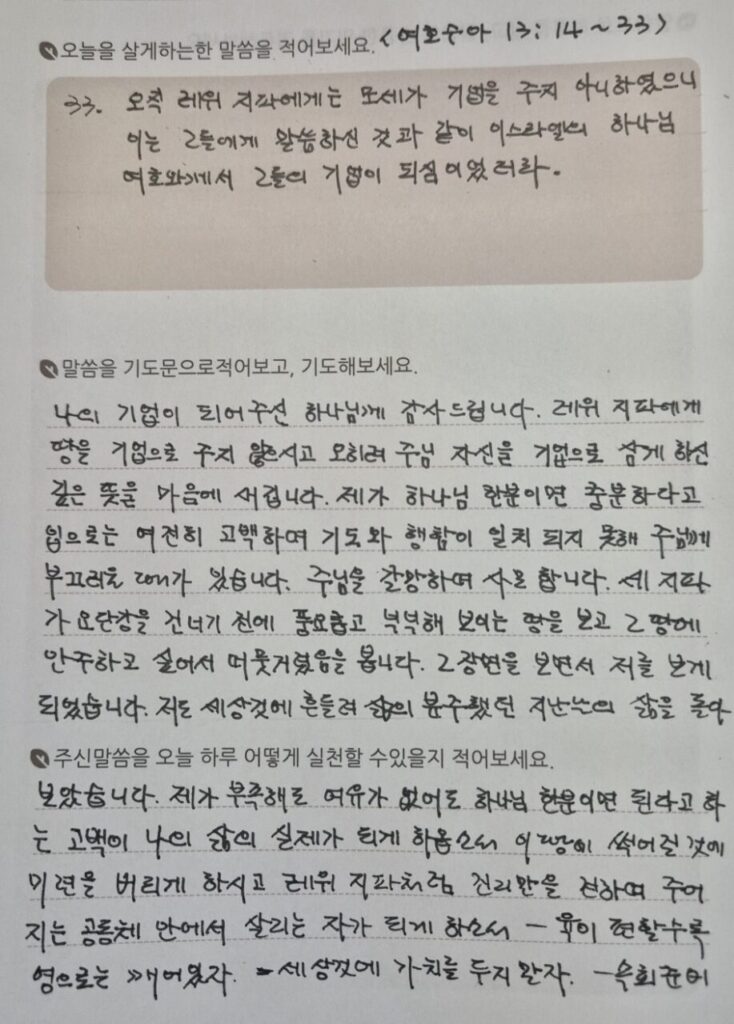 오늘을 살게하는한 말씀을 적어보세요. <여호수아 13: 14~33>
33. 오직 레위 지파에게는 모세가 기업을 주지 아니하였으니
이는 그들에게 말씀하신 것과 같이 이스라엘의 하나님
여호와께서 그들의 기업이 되심이었더라.
말씀을 기도문으로적어보고, 기도해보세요.
나의 기업이 되어주신 하나님께 감사드립니다. 레위 지파에게
땅을 기업으로 주지 않으시고 오히려 주님 자신을 기업으로 삼게 하신
깊은 뜻을 마음에 새깁니다. 제가 하나님 한분이면 충분하다고
입으로는 여전히 고백하며 기도와 행함이 일치 되지 못해 주님께
부끄러울 때가 있습니다. 주님을 갈망하며 사모 합니다. 세 지파
가 요단강을 건너기 전에 풍요롭고 넉넉해 보이는 땅을 보고 그 땅에
안주하고 싶어서 머뭇거렸음을 봅니다. 그 장면을 보면서 저를 보게
되었습니다. 저도 세상것에 흔들려 삶의 분주했던 지난 삶을 돌아
주신말씀을 오늘 하루 어떻게 실천할 수있을지 적어보세요.
보았습니다. 제가 부족해도 여유가 없어도 하나님 한분이면 된다고 하
는 고백이 나의 삶의 실제가 되게 하옵소서 이 땅의 썩어질 것에
미련을 버리게 하시고 레위 지파처럼 진리만을 전하며 주어
지는 공동체 안에서 살리는 자가 되게 하소서 - 육이 편할수록
영으로는 깨어있자. - 세상것에 가치를 두지 말자. -